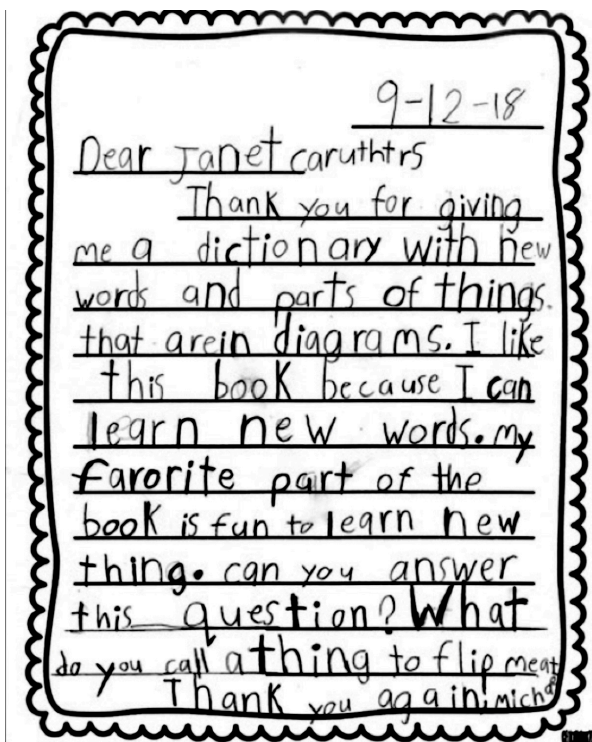 9-12-18
Dear Janet caruthtrs
Thank you for giving
me a dictionary with new
words and parts of things.
that arein diagrams. I like
this book because I can
learn new words. my
farorite part of the
book is fun to learn new
thing. can you answer
this question? What
do you call a thing to flip meat
Thank you again!